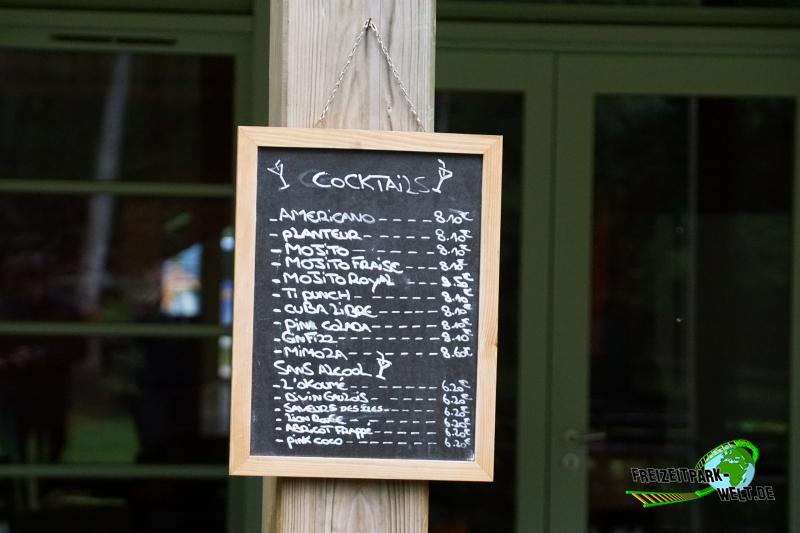 COCKTAILS
- AMERICANO ------ 8.10€
- PLANTEUR ------ 8.10€
- MOJITO ------ 8.10€
- MOJITO FRAISE ---- 8.10€
- MOJITO ROYAL ---- 8.50€
- TI PUNCH ------ 8.10€
- CUBA LIBRE ------ 8.10€
- PINA COLADA ------ 8.10€
- GIN FIZZ ------ 8.10€
- MIMOZA ------ 8.60€
SANS ALCOOL
- L'OKOUMÉ ------ 6.20€
- DIVIN GAULOIS ------ 6.20€
- SAVEURS DES ILES ---- 6.20€
- LION ------ 6.20€
- ABRICOT FRAPPÉ ---- 6.20€
- PINK COCO ------ 6.20€
FREIZEITPARK-
WELT.DE